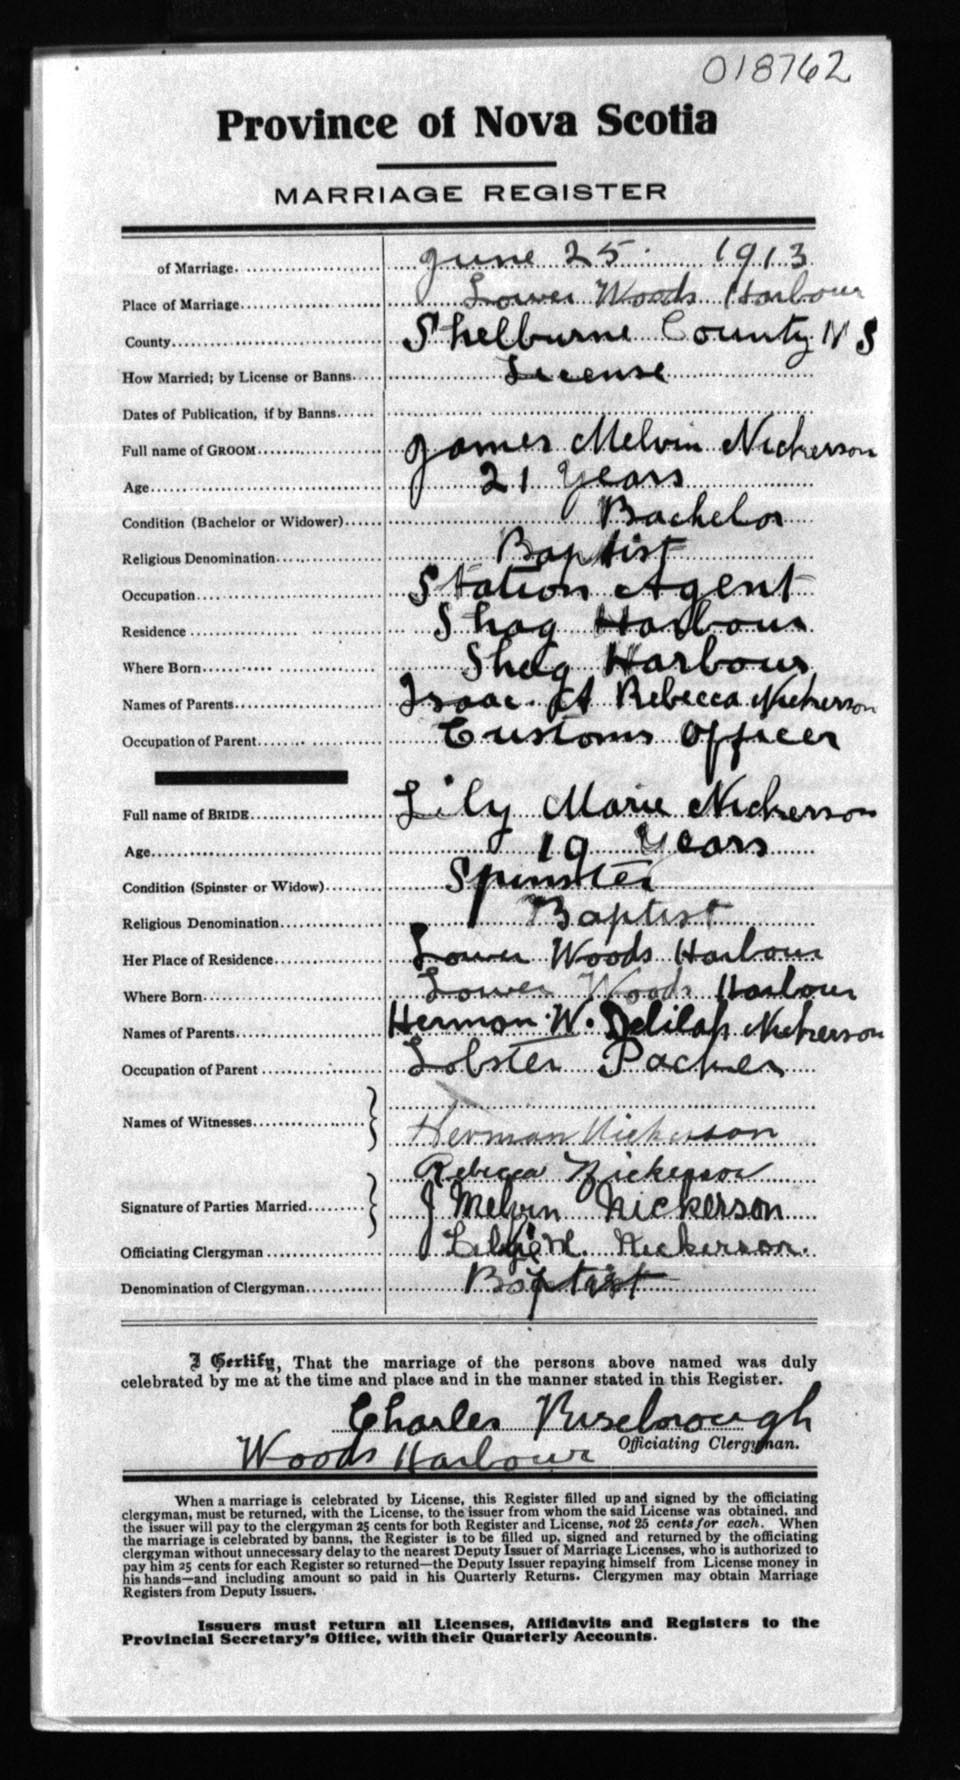 018762
Province of Nova Scotia
MARRIAGE REGISTER
of Marriage. June 25. 1913
Place of Marriage Lower Woods Harbour
County Shelburne County N S
How Married; by License or Banns License
Dates of Publication, if by Banns
Full name of GROOM James Melvin Nickerson
Age 21 Years
Condition (Bachelor or Widower) Bachelor
Religious Denomination Baptist
Occupation Station Agent
Residence Shag Harbour
Where Born Shag Harbour
Names of Parents Isaac. A Rebecca Nickerson
Occupation of Parent Customs Officer
Full name of BRIDE Lily Marie Nickerson
Age 19 Years
Condition (Spinster or Widow) Spinster
Religious Denomination Baptist
Her Place of Residence Lower Woods Harbour
Where Born Lower Woods Harbour
Names of Parents Hermon W. Delilah Nickerson
Occupation of Parent Lobster Packer
Names of Witnesses Herman Nickerson
Rebecca Nickerson
Signature of Parties Married J Melvin Nickerson
Officiating Clergyman M. Nickerson.
Denomination of Clergyman Baptist
I Certify, That the marriage of the persons above named was duly
celebrated by me at the time and place and in the manner stated in this Register.
Charles
Officiating Clergyman.
Woods Harbour
When a marriage is celebrated by License, this Register filled up and signed by the officiating
clergyman, must be returned, with the License, to the issuer from whom the said License was obtained, and
the issuer will pay to the clergyman 25 cents for both Register and License, not 25 cents for each. When
the marriage is celebrated by banns, the Register is to be filled up, signed and returned by the officiating
clergyman without unnecessary delay to the nearest Deputy Issuer of Marriage Licenses, who is authorized to
pay him 25 cents for each Register so returned—the Deputy Issuer repaying himself from License money in
his hands—and including amount so paid in his Quarterly Returns. Clergymen may obtain Marriage
Registers from Deputy Issuers.
Issuers must return all Licenses, Affidavits and Registers to the
Provincial Secretary's Office, with their Quarterly Accounts.